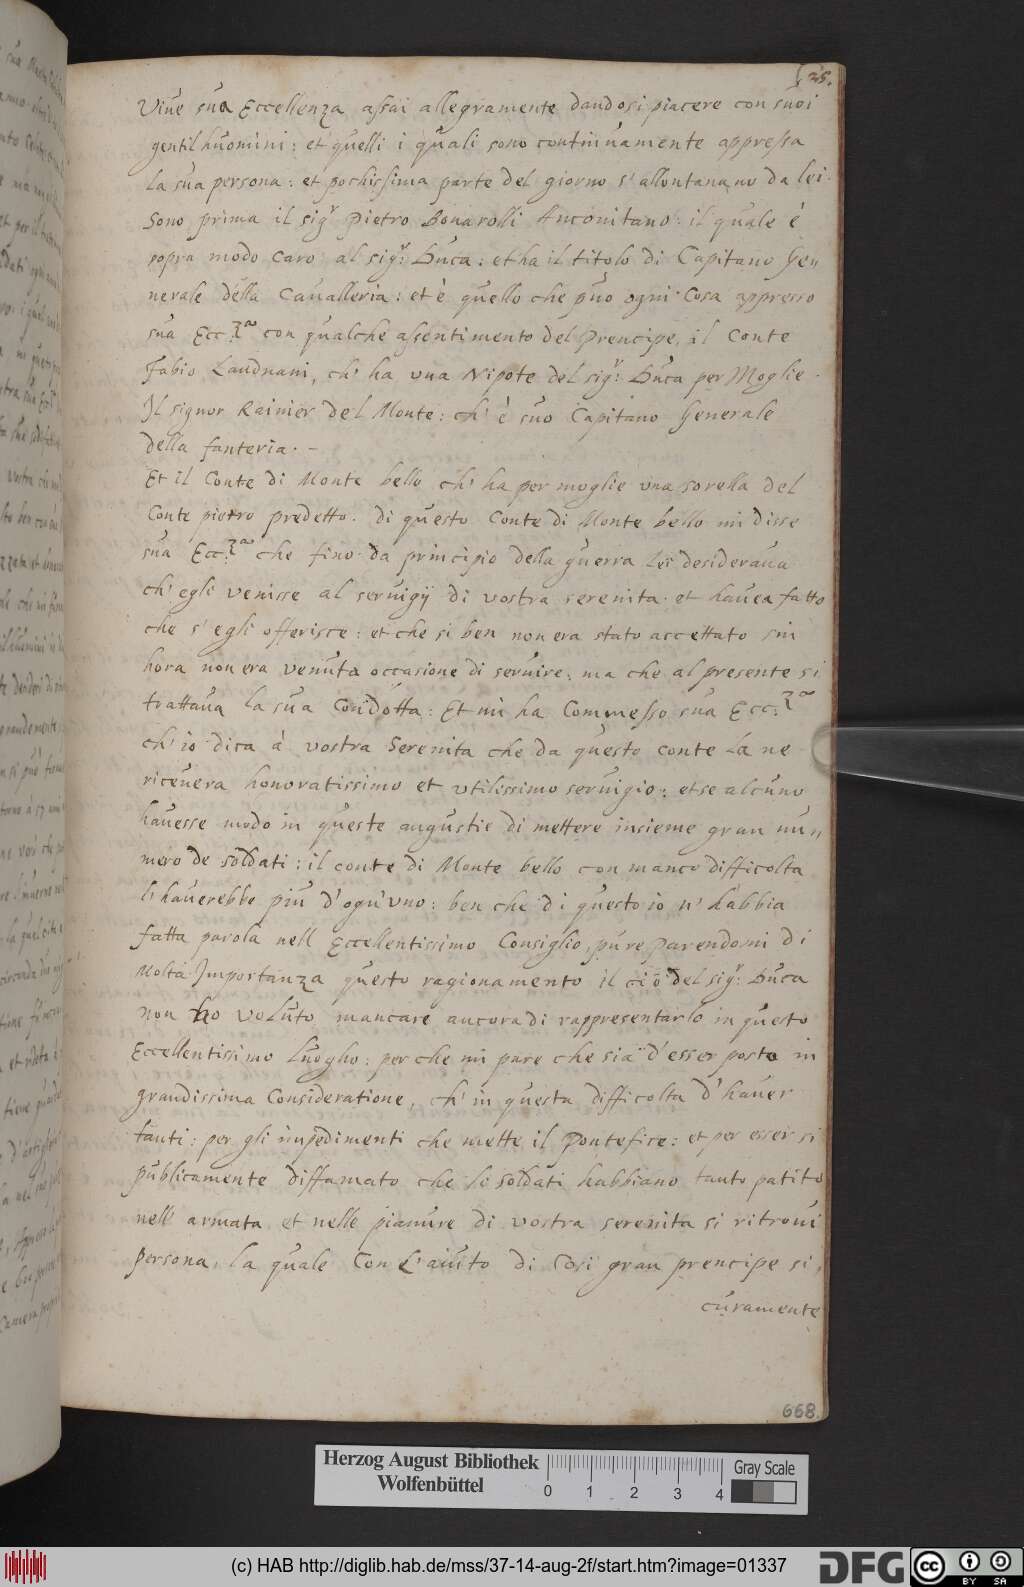 25.
Viue sua Eccellenza assai allegramente dandosi piacere con suoi
gentilhuomini: et quelli i quali sono continuamente appressa
la sua persona: et pochissima parte del giorno s'allontanano da lei.
Sono prima il sigr Pietro Bonarolli Anconitano: il quale è
sopra modo caro al sigr: Duca: et ha il titolo di Capitano Ge„
nerale della Caualleria: et è quello che puo ogni Cosa appresso
sua Ecc:za con qualche assentimento del Prencipe, il Conte
Fabio Landnani, ch' ha una Nipote del sigr: Duca per Moglie.
Il signor Rainier del Monte: ch' è suo Capitano Generale
della fanteria. –
Et il Conte di Monte bello ch' ha per moglie una sorella del
Conte pietro predetto. di questo Conte di Monte bello mi disse
sua Ecc:za che fino da principio della guerra lei desideraua
ch' egli venisse al seruigij di vostra serenita. et hauea fatto
che s' egli offerisce: et che si ben non era stato accettato sin
hora non era venuta occasione di seruire: ma che al presente si
trattaua la sua Condotta: Et mi ha Commesso sua Ecc:za
ch' io dica à vostra Serenita che da questo conte La ne
riceuera honoratissimo et utilissimo seruigio: et se alcuno
hauesse modo in queste angustie di mettere insieme gran nu„
mero de soldati: il conte di Monte bello con manco difficolta
l' hauerebbe più d' ogn' uno: ben che di questo io n' habbia
fatta parola nell Eccellentissimo Consiglio, pure parendomi di
Molta Importanza questo ragionamento il ciò del sigr: Duca
non ho voluto mancare ancora di rappresentarlo in questo
Eccellentissimo Luogho: per che mi pare che sia d' esser posto in
grandissima Consideratione, ch' in questa difficolta d' hauer
fanti: per gli impedimenti che mette il Pontefice: et per esser si
publicamente diffamato che li soldati habbiano tanto patito
nell' armata et nelle pianure di vostra serenita si ritroui
persona, la quale Con L'aiuto di Cosi gran prencipe si,
curamente
668.
Herzog August Bibliothek
Wolfenbüttel
0 1 2 3 4
Gray Scale
(c) HAB http://diglib.hab.de/mss/37-14-aug-2f/start.htm?image=01337
DFG
cc BY SA